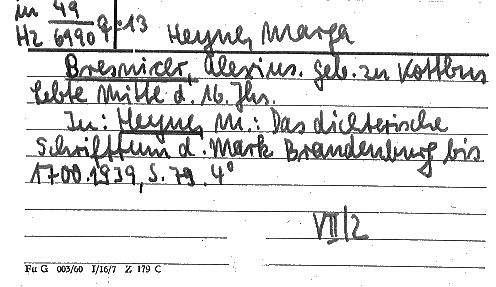 in 49
Hz 6990 q:13 Heyne, Marga
Bresnicer, Alexius. geb. zu Kottbus
lebte Mitte d. 16. Jhs.
In: Heyne, M.: Das dichterische
Schrifttum d. Mark Brandenburg bis
1700. 1939, S. 79. 4°
VII/2
Fu G 003/60 I/16/7 Z 179 C